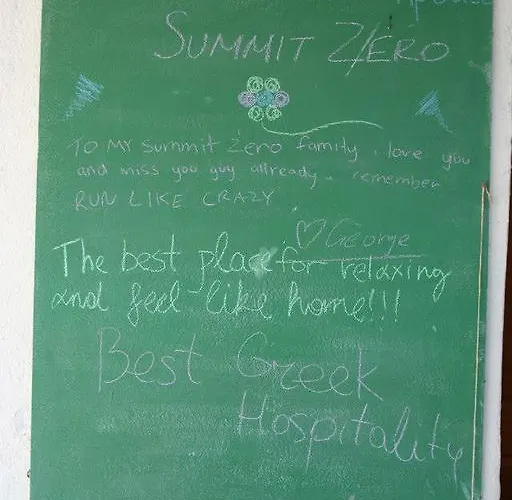 SUMMIT ZERO
TO MY Summit Zero family, love you
and miss you guy allready. remember
RUN LIKE CRAZY
♡ George
The best place for relaxing
and feel like home!!!
Best Greek
Hospitality